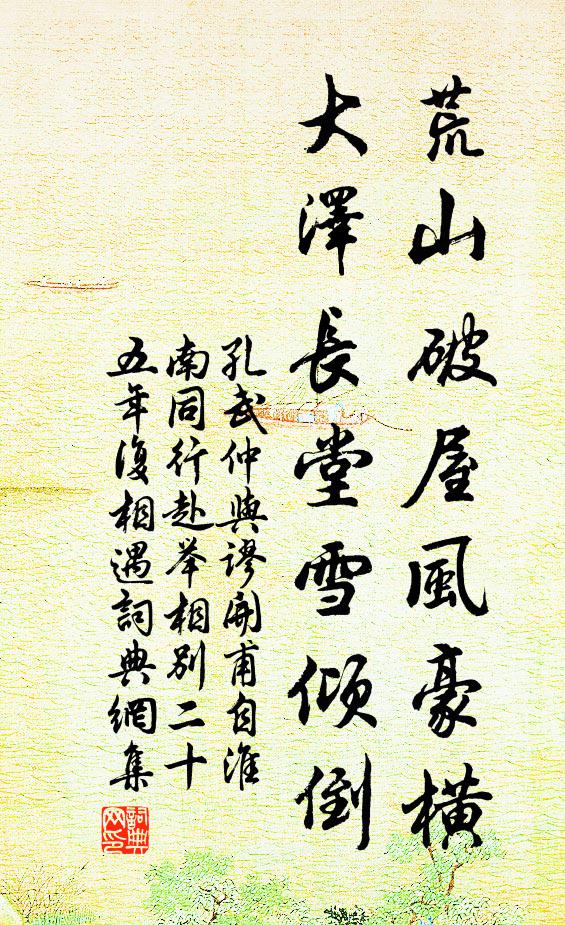 荒山破屋風豪橫
大澤長堂雪傾倒
孔武仲與謬開甫自淮
南同行赴举相別二十
五年復相遇詞典網集
詞典網印